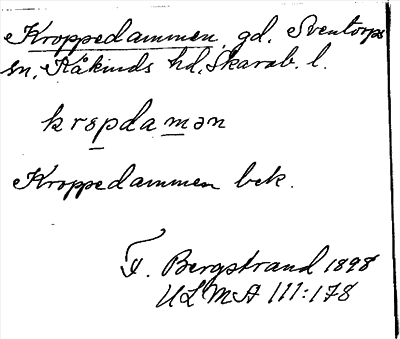 Kroppedammen, gd, Sventorps
sn, Kåkinds hd, Skarab. l.
krɵpdamən
Kroppedammen bek.
F. Bergstrand 1898
ULMA 111:178